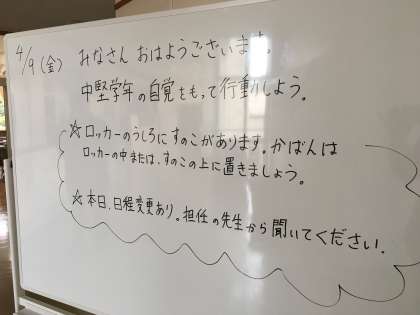 4/9(金) みなさん おはようございます。
中堅学年の自覚をもって行動しよう。
☆ロッカーのうしろにすのこがあります。かばんは
ロッカーの中または、すのこの上に置きましょう。
☆本日、日程変更あり。担任の先生から聞いてください.